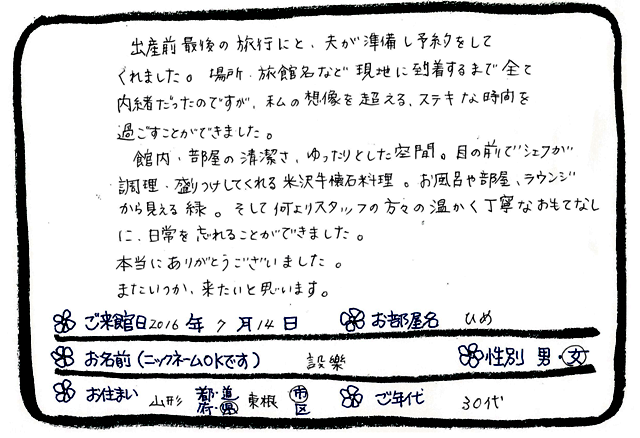 出産前最後の旅行にと、夫が準備し予約をして
くれました。場所・旅館名など現地に到着するまで全て
内緒だったのですが、私の想像を超える、ステキな時間を
過ごすことができました。
館内・部屋の清潔さ、ゆったりとした空間。目の前でシェフが
調理・盛りつけしてくれる米沢牛懐石料理。お風呂や部屋、ラウンジ
から見える緑。そして何よりスタッフの方々の温かく丁寧なおもてなし
に、日常を忘れることができました。
本当にありがとうございました。
またいつか、来たいと思います。
ご来館日 2016年 7月14日 お部屋名 ひめ
お名前(ニックネームOKです) 設樂 性別 男・女
お住まい 山形 都・道府・県 東根 市区 ご年代 30代